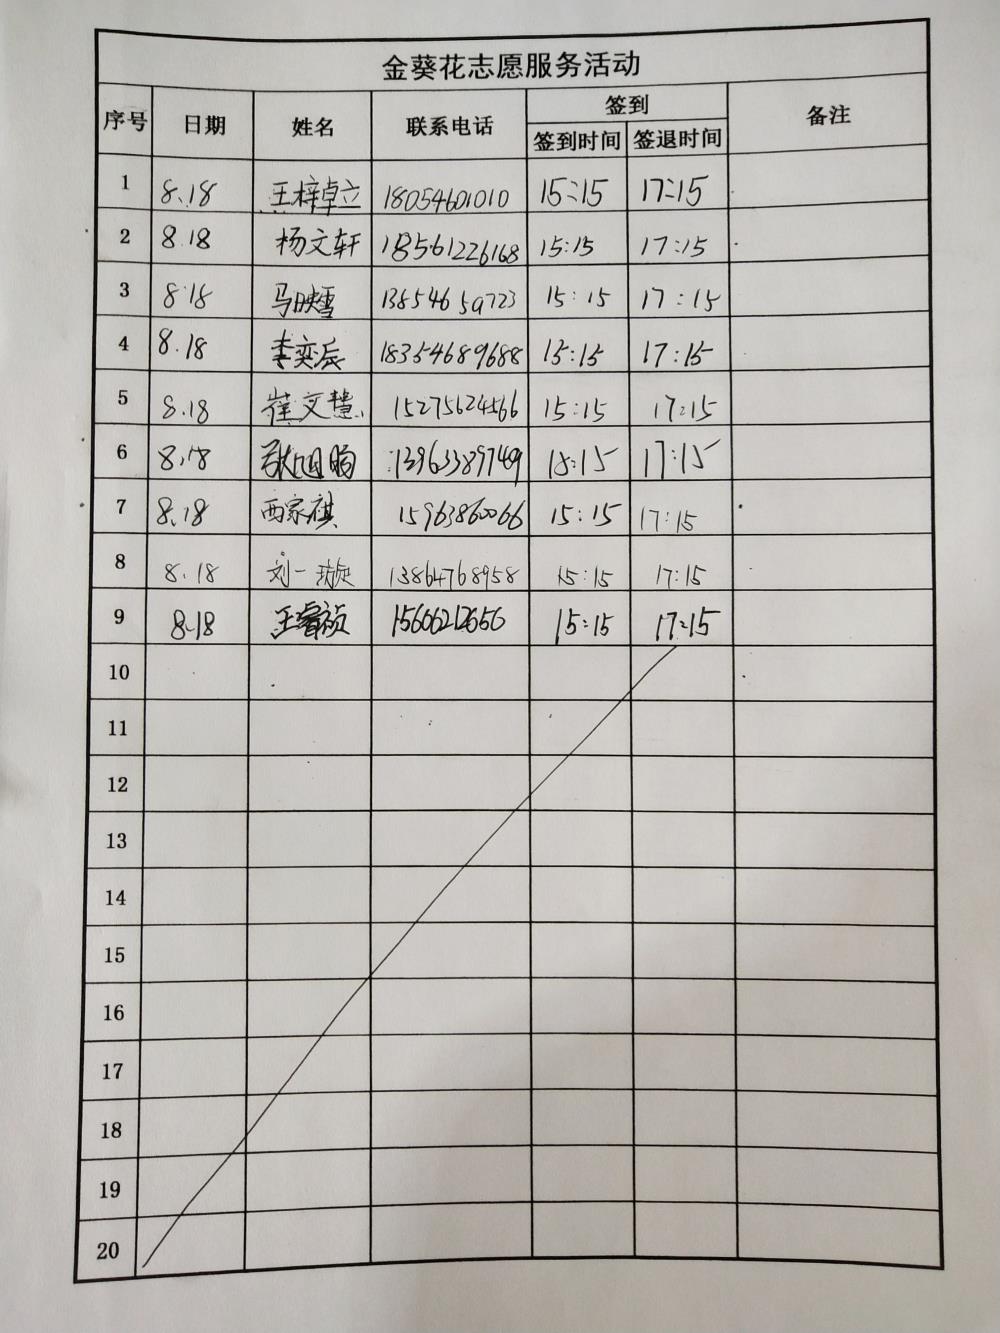 金葵花志愿服务活动
序号 日期 姓名 联系电话 签到 备注
签到时间 签退时间
1 8.18 王梓卓立 18054601010 15:15 17:15
2 8.18 杨文轩 18561226168 15:15 17:15
3 8.18 马映雪 13854659723 15:15 17:15
4 8.18 李奕辰 18354689688 15:15 17:15
5 8.18 崔文慧 15275624566 15:15 17:15
6 8.18 15:15 17:15
7 8.18 西家祺 15963860066 15:15 17:15
8 8.18 刘一璇 13864768958 15:15 17:15
9 8.18 王睿祯 15606212656 15:15 17:15
10
11
12
13
14
15
16
17
18
19
20